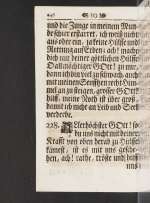 und die Zunge in meinem Mun-
de schier erstarret, ich weiß nicht
aus oder ein, ja keine Hülffe und
Rettung aus Erden, ach! nach
dich nur deiner göttlichen Hülffe.
O allmächtiger GOtt! zu
dann ich bin viel zu schwach, auch
mit meinem Seuffzen recht Him-
mel an zu steigen, grosser GOtt!
hilff, meine Noth ist sehr groß,
damit ich nicht an Leib und Seel
verderbe.
228. Allerhöchster GOtt! so
du uns nicht mit deiner
Krafft von oben herab zu Hülffe
kämest, ist es mit uns gesche-
hen, ach! rathe, tröste und hilff
uns